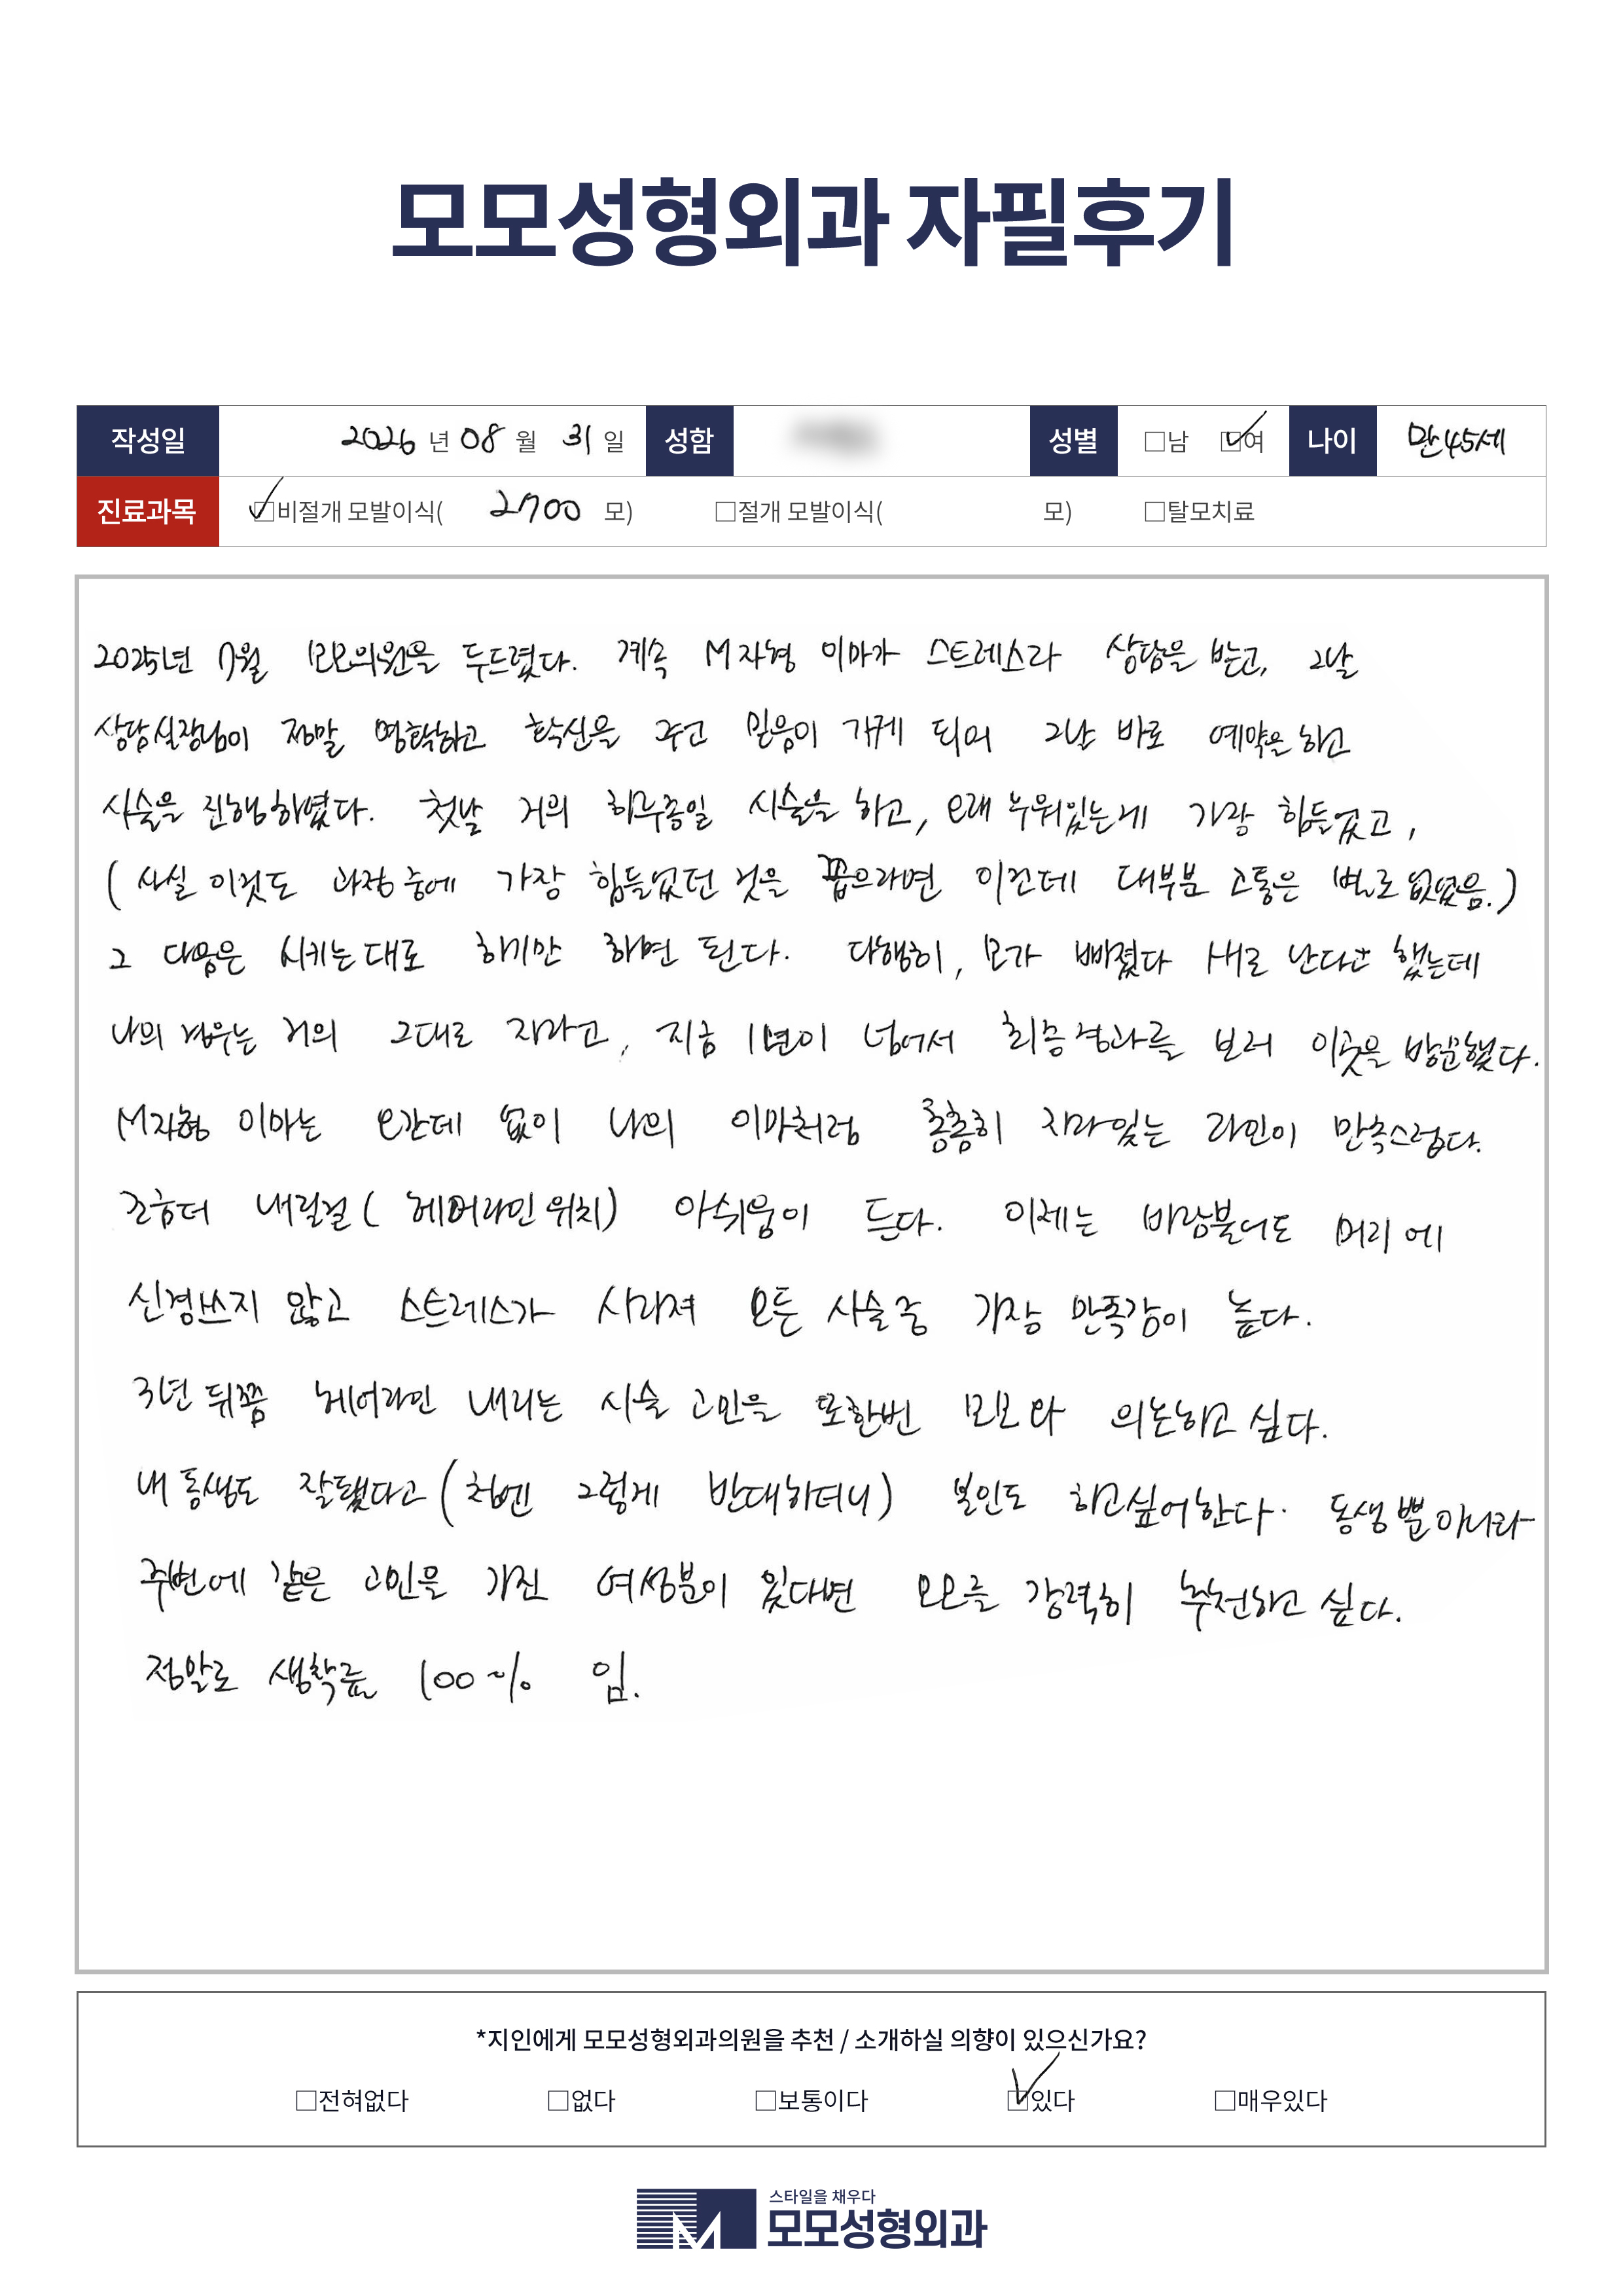 모모성형외과 자필후기
작성일 2026 년 08 월 31 일 성함 성별 □남 □여 나이 만 45세
진료과목 □비절개 모발이식( 2700 모) □절개 모발이식( 모) □탈모치료
2025년 7월 모모의원을 두드렸다. 계속 M자형 이마가 스트레스라 상담을 받고, 그날
상담실장님이 정말 명확하고 확신을 주고 믿음이 가게 되어 그날 바로 예약을 하고
시술을 진행하였다. 첫날 거의 하루종일 시술을 하고, 오래 누워있는게 가장 힘들었고,
( 사실 이것도 과정중에 가장 힘들었던 것을 꼽으라면 이건데 대부분 고통은 별로없었음.)
그 다음은 시키는대로 하기만 하면 된다. 다행히, 모가 빠졌다 새로 난다고 했는데
나의 경우는 거의 그대로 자라고, 지금 1년이 넘어서 최종경과를 보러 이곳을 방문했다.
M자형 이마는 온간데 없이 나의 이마처럼 촘촘히 자라있는 라인이 만족스럽다.
조금더 내릴걸( 헤어라인 위치) 아쉬움이 든다. 이제는 바람불어도 머리에
신경쓰지 않고 스트레스가 사라져 모든 시술중 가장 만족감이 높다.
3년 뒤쯤 헤어라인 내리는 시술 고민을 또한번 모모와 의논하고 싶다.
내 동생도 잘됐다고 (첨엔 그렇게 반대하더니) 본인도 하고싶어한다. 동생뿐아니라
주변에 같은 고민을 가진 여성분이 있다면 모모를 강력히 추천하고 싶다.
정말로 생착률 100% 임.
*지인에게 모모성형외과의원을 추천 / 소개하실 의향이 있으신가요?
□전혀없다 □없다 □보통이다 □있다 □매우있다
스타일을 채우다
모모성형외과